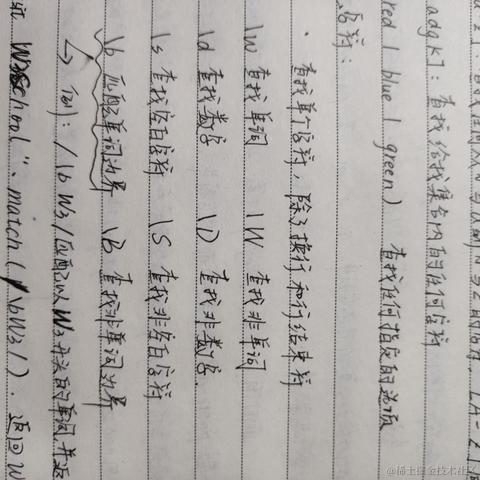 adgk]：查找给找集合内的任何字符
red | blue | green) 查找任何指定的选项
字符：
· 查找单个字符，除了换行和行结束符
\w 查找单词 \W 查找非单词
\d 查找数字 \D 查找非数字
\s 查找空白字符 \S 查找非空白字符
\b 匹配单词边界 \B 查找非单词边界
→ 例：/\b W3/匹配以W3开头的单词并返
W3School".match(/\bW3/). 返回W
@稀土掘金技术社区